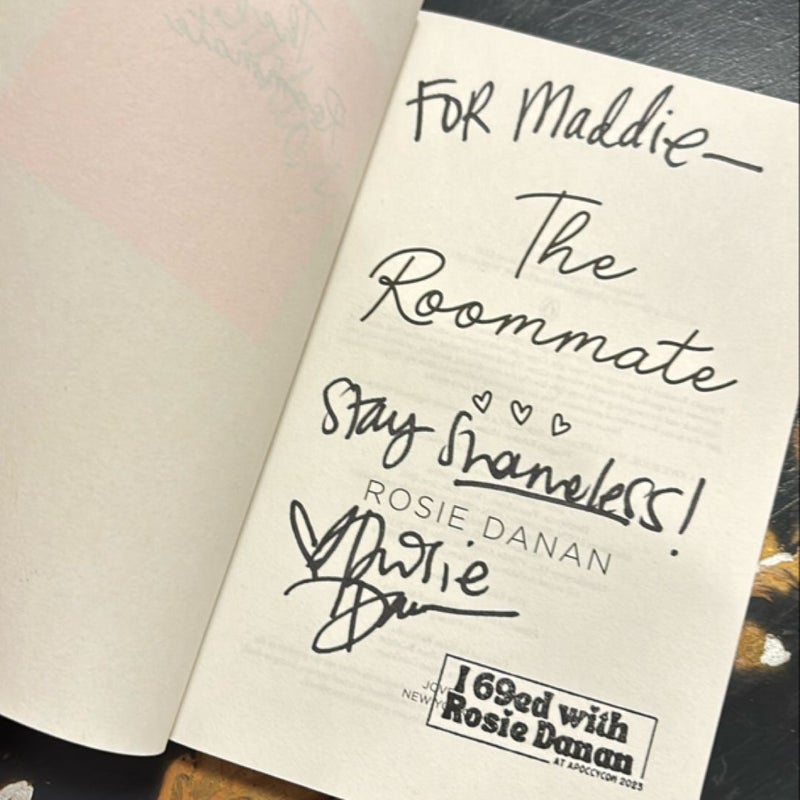 FOR Maddie—
The
Roommate
Stay Shameless!
ROSIE DANAN
Rosie
Dan
JOVE
NEW YO
I 69ed with
Rosie Danan
AT APOLLYCON 2023